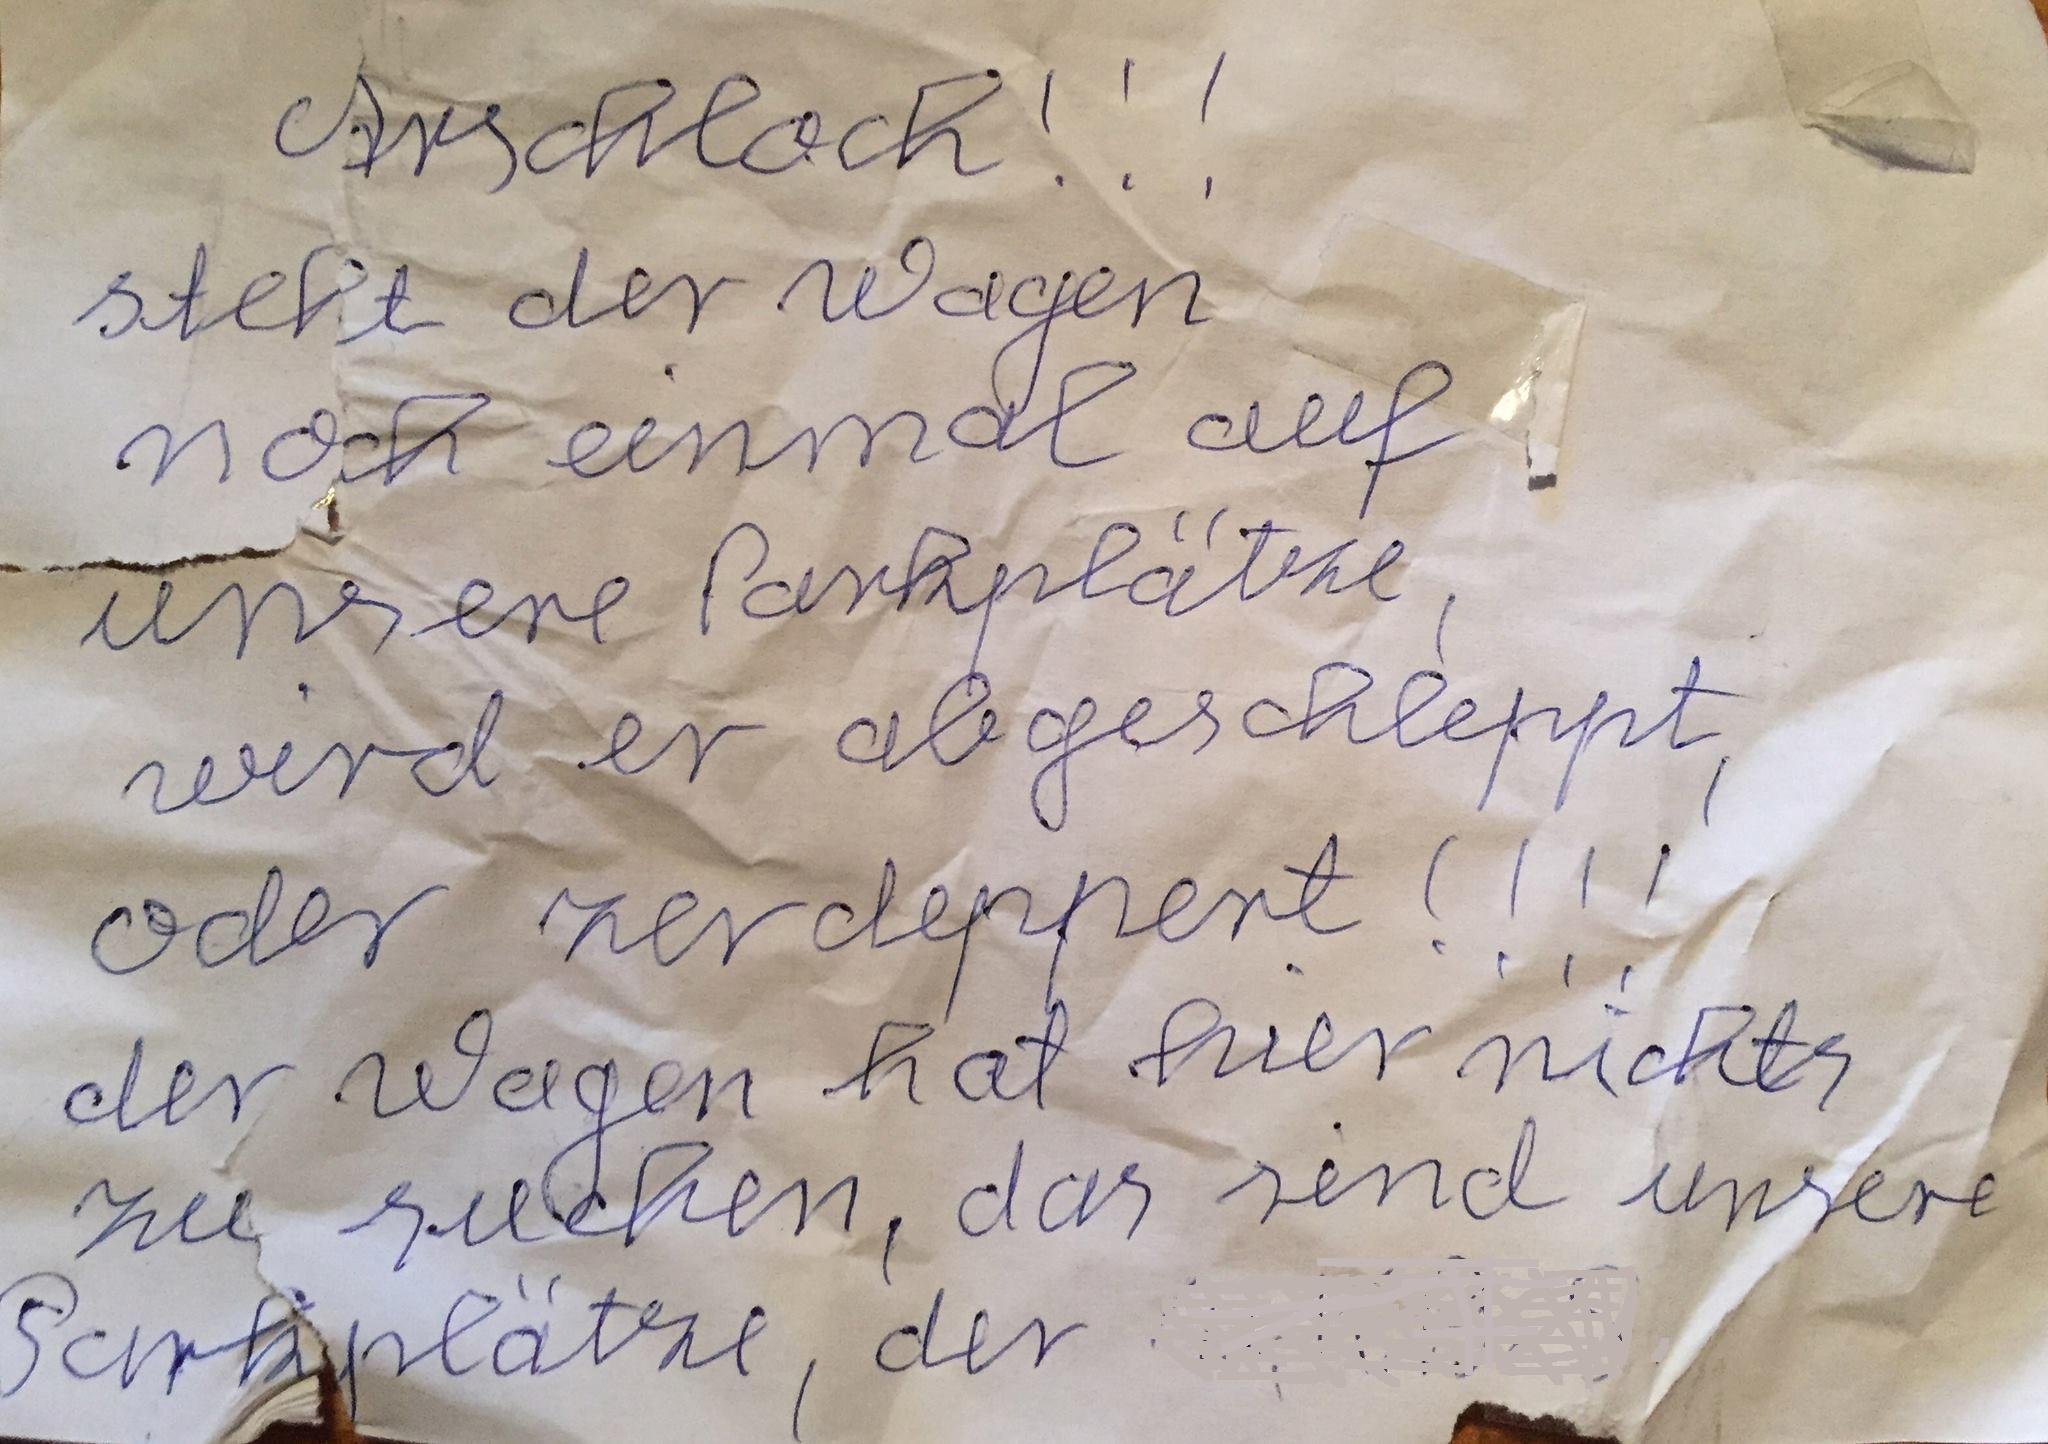 Arschloch!!!
steht der Wagen
noch einmal auf
unsere Parkplätze,
wird er abgeschleppt,
oder zerdeppert!!!!
der Wagen hat hier nichts
zu suchen, das sind unsere
Parkplätze, der